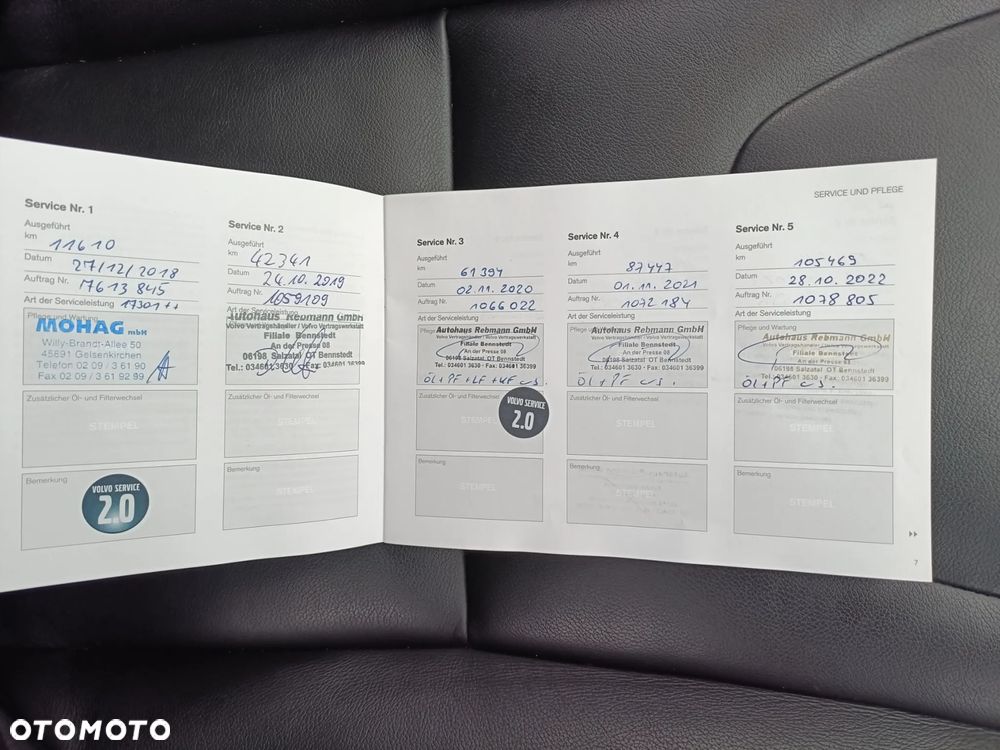 SERVICE UND PFLEGE
Service Nr. 1
Ausgeführt
km 11610
Datum 27/12/2018
Auftrag Nr. 7613845
Art der Serviceleistung 17301++
Pflege und Wartung
MOHAG mbH
Willy-Brandt-Allee 50
45891 Gelsenkirchen
Telefon 02 09 / 3 61 90
Fax 02 09 / 3 61 92 99
Zusätzlicher Öl- und Filterwechsel
STEMPEL
Bemerkung
VOLVO SERVICE
2.0
Service Nr. 2
Ausgeführt
km 42341
Datum 24.10.2019
Auftrag Nr. 1059109
Art der Serviceleistung
Autohaus Rebmann GmbH
Volvo Vertragshändler / Volvo Vertragswerkstatt
Filiale Bennstedt
An der Presse 08
06198 Salzatal OT Bennstedt
Tel.: 034601 3630 - Fax: 034601 36399
Zusätzlicher Öl- und Filterwechsel
STEMPEL
Bemerkung
STEMPEL
Service Nr. 3
Ausgeführt
km 61394
Datum 02.11.2020
Auftrag Nr. 1066022
Art der Serviceleistung
Pflege
Autohaus Rebmann GmbH
Volvo Vertragshändler / Volvo Vertragswerkstatt
Filiale Bennstedt
An der Presse 08
06198 Salzatal OT Bennstedt
Tel.: 034601 3630 - Fax: 034601 36399
Zusätzlicher Öl- und Filterwechsel
STEMPEL
VOLVO SERVICE
2.0
Bemerkung
STEMPEL
Service Nr. 4
Ausgeführt
km 87447
Datum 01.11.2021
Auftrag Nr. 1072184
Art der Serviceleistung
Autohaus Rebmann GmbH
Volvo Vertragshändler / Volvo Vertragswerkstatt
Filiale Bennstedt
An der Presse 08
06198 Salzatal OT Bennstedt
Tel.: 034601 3630 - Fax: 034601 36399
Zusätzlicher Öl- und Filterwechsel
STEMPEL
Bemerkung
STEMPEL
Service Nr. 5
Ausgeführt
km 105469
Datum 28.10.2022
Auftrag Nr. 1078805
Art der Serviceleistung
Pflege und Wartung
Autohaus Rebmann GmbH
Volvo Vertragshändler / Volvo Vertragswerkstatt
Filiale Bennstedt
An der Presse 08
06198 Salzatal OT Bennstedt
Tel.: 034601 3630 - Fax: 034601 36399
Zusätzlicher Öl- und Filterwechsel
STEMPEL
Bemerkung
STEMPEL
7
OTOMOTO